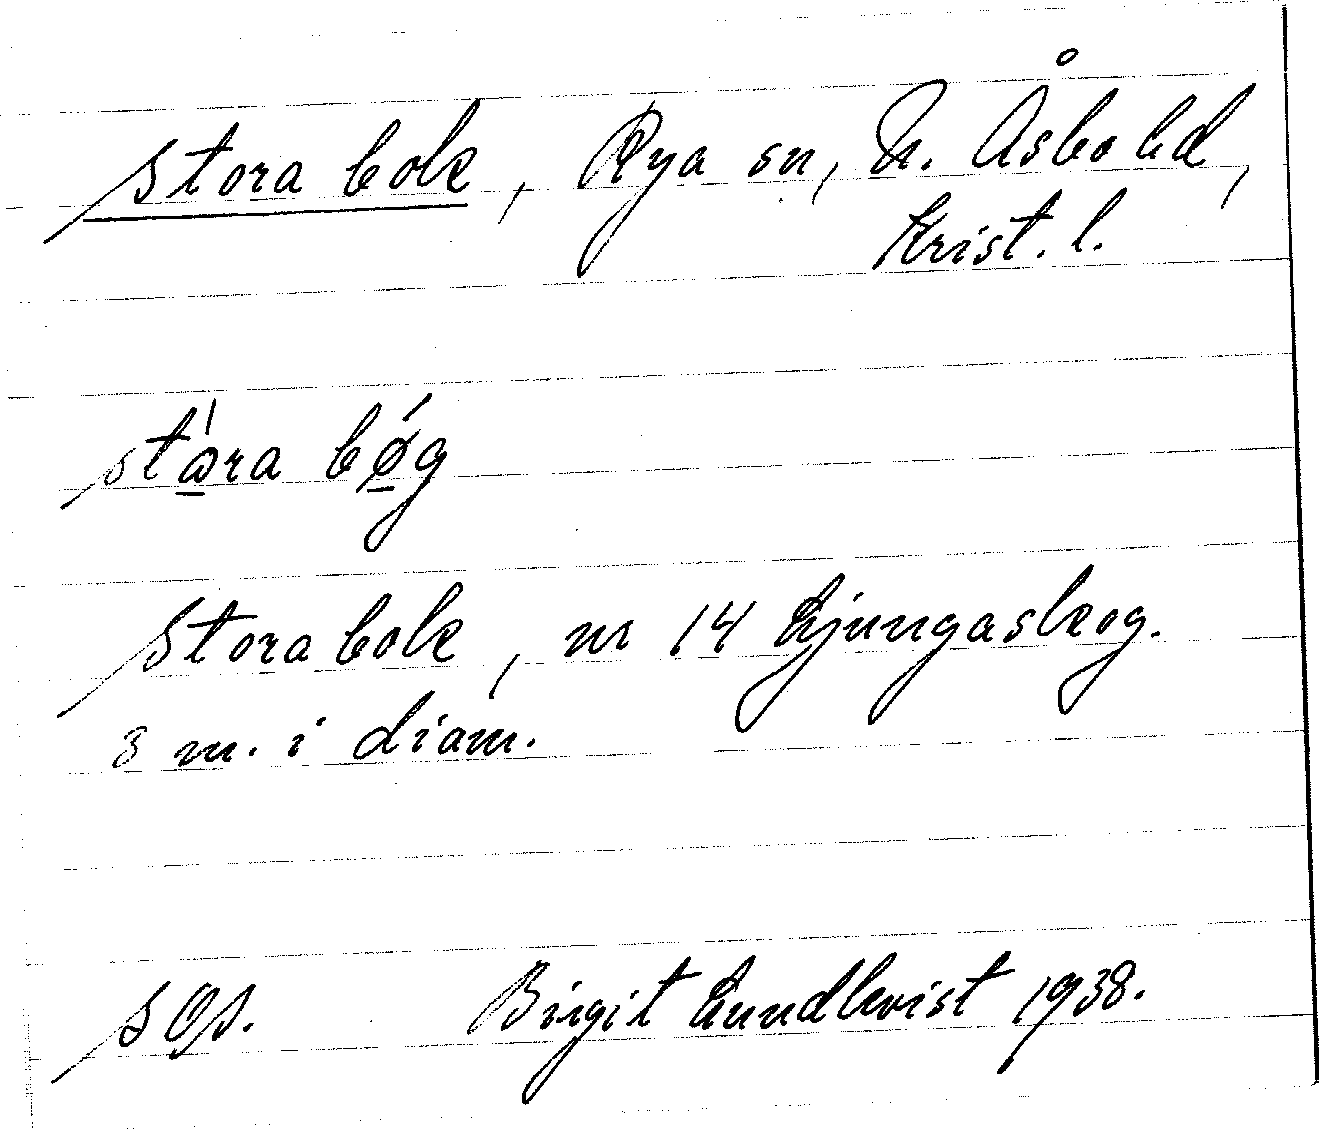 Stora bok, Rya sn, N. Åsbo hd,
Krist. l.
stώ̲ra bǿ̲g
Stora bok, nr 14 Ljungaskog.
3 m. i diam.
SOS. Birgit Lundkvist 1938.